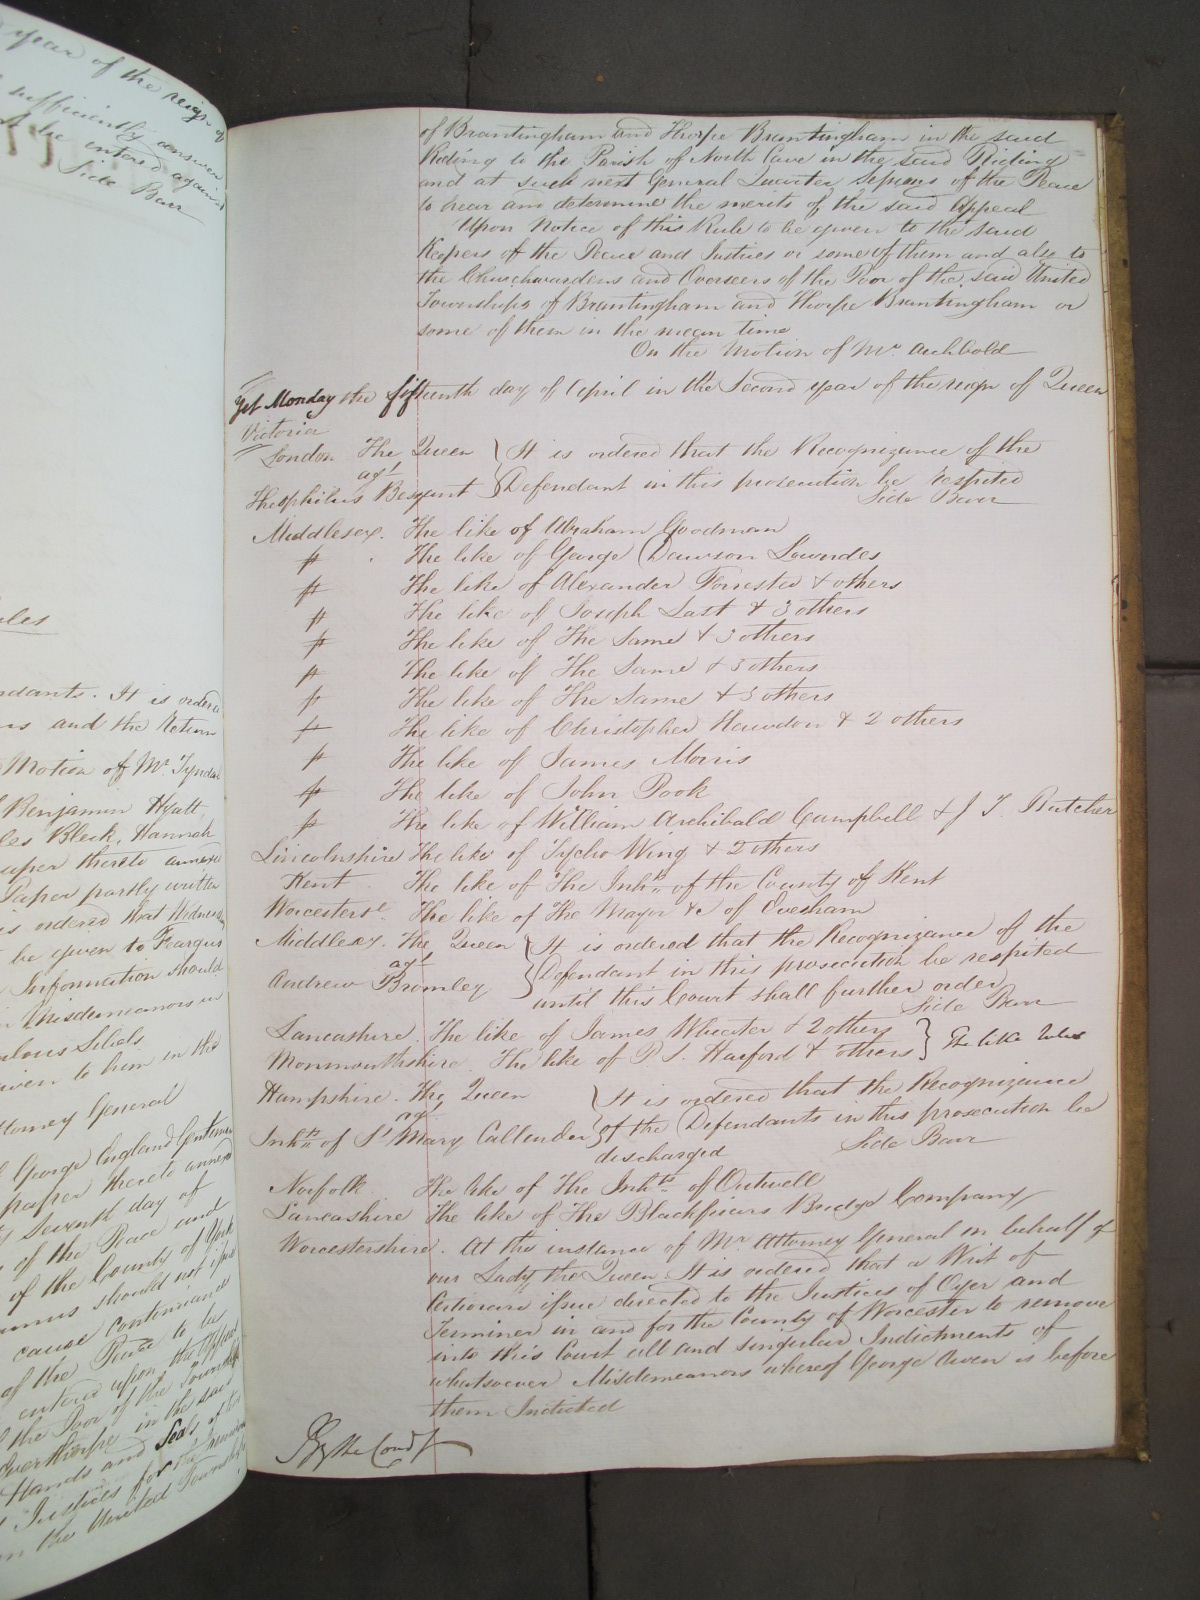 year of the reign of
sufficiently answer
be entered against
Side Barr
ules
ndants. It is order'd
rs and the Return
Motion of Mr Tyndal
Benjamin Hyatt,
les Bleek, Hannah
aper thereto annexed
Paper partly written
is ordered that Wednesday
be given to Feargus
Information should
Misdemeanors in
ulous Libels
iven to him in the
ttorney General
George England Gentleman
paper thereto annexed
Seventh day of
of the Peace and
of the County of York
amus should not issue
cause continuances
of the Peace to be
entered upon the Appeal
the Poor of the Township
Everthorpe in the said
Hands and Seals of two
Justices for the removal
the United Townships
of Brantingham and Thorpe Brantingham in the said
Riding to the Parish of North Cave in the said Riding
and at such next General Quarter Sessions of the Peace
to hear and determine the merits of the said Appeal
Upon Notice of this Rule to be given to the said
Keepers of the Peace and Justices or some of them and also to
the Churchwardens and Overseers of the Poor of the said United
Townships of Brantingham and Thorpe Brantingham or
some of them in the mean time
On the Motion of Mr Archbold
Yet Monday the fifteenth day of April in the Second year of the reign of Queen
Victoria
London The Queen } It is ordered that the Recognizance of the
agt
Theophilus Besgunt } Defendant in this prosecution be respited
Side Barr
Middlesex. The like of Abraham Goodman
The like of George Dawson Lowndes
The like of Alexander Forrester & others
The like of Joseph Last & 3 others
The like of The Same & 3 others
The like of The Same & 3 others
The like of The Same & 3 others
The like of Christopher Hawdon & 2 others
The like of James Morris
The like of John Pook
The like of William Archibald Campbell & J T. Butcher
Lincolnshire The like of Tycho Wing & 2 others
Kent The like of The Inhts of the County of Kent
Worcestersre. The like of The Mayor &c of Evesham
Middlesex. The Queen } It is ordered that the Recognizance of the
agt
Andrew Bromley } Defendant in this prosecution be respited
until this Court shall further order
Side Barr
Lancashire. The like of James Wheater & 2 others } The like Rules
Monmouthshire. The like of P. S. Harford & others
Hampshire. The Queen } It is ordered that the Recognizance
agt
Inhts of St Mary Callender } of the Defendants in this prosecution be
discharged
Side Barr
Norfolk The like of The Inhts of Outwell
Lancashire The like of The Blackfriars Bridge Company
Worcestershire. At the instance of Mr Attorney General on behalf of
our Lady the Queen It is ordered that a Writ of
Certiorari issue directed to the Justices of Oyer and
Terminer in and for the County of Worcester to remove
into this Court all and singular Indictments of
whatsoever Misdemeanors whereof George Owen is before
them Indicted
By the Court